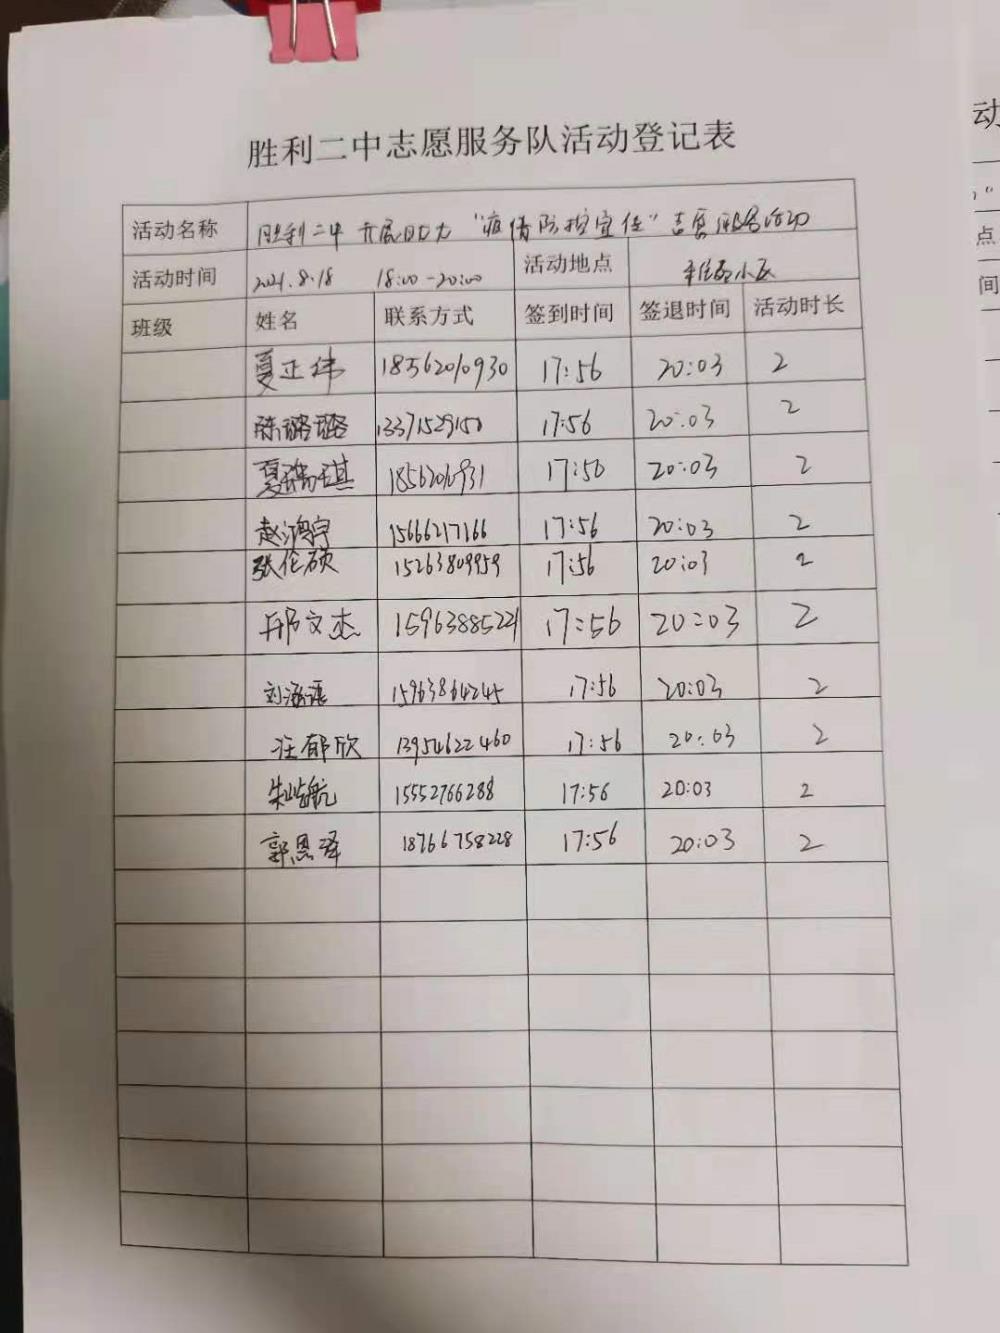 胜利二中志愿服务队活动登记表
活动名称 胜利二中开展助力“疫情防控宣传”志愿服务活动
活动时间 2021.8.18 18:00-20:00 活动地点 小区
班级 姓名 联系方式 签到时间 签退时间 活动时长
夏正纬 18562010930 17:56 20:03 2
陈璐璐 13371529150 17:56 20:03 2
夏瑞琪 18562010931 17:56 20:03 2
赵鸿宇 15666217166 17:56 20:03 2
张伦硕 15263809959 17:56 20:03 2
邴文杰 15963885221 17:56 20:03 2
刘涵 15963864245 17:56 20:03 2
汪郁欣 13954622460 17:56 20:03 2
朱屹航 15552766288 17:56 20:03 2
郭恩泽 18766758228 17:56 20:03 2
动
点
间